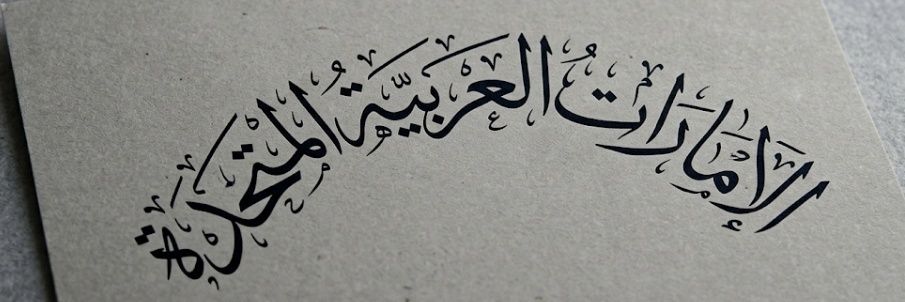 الإمارات العربية المتحدة